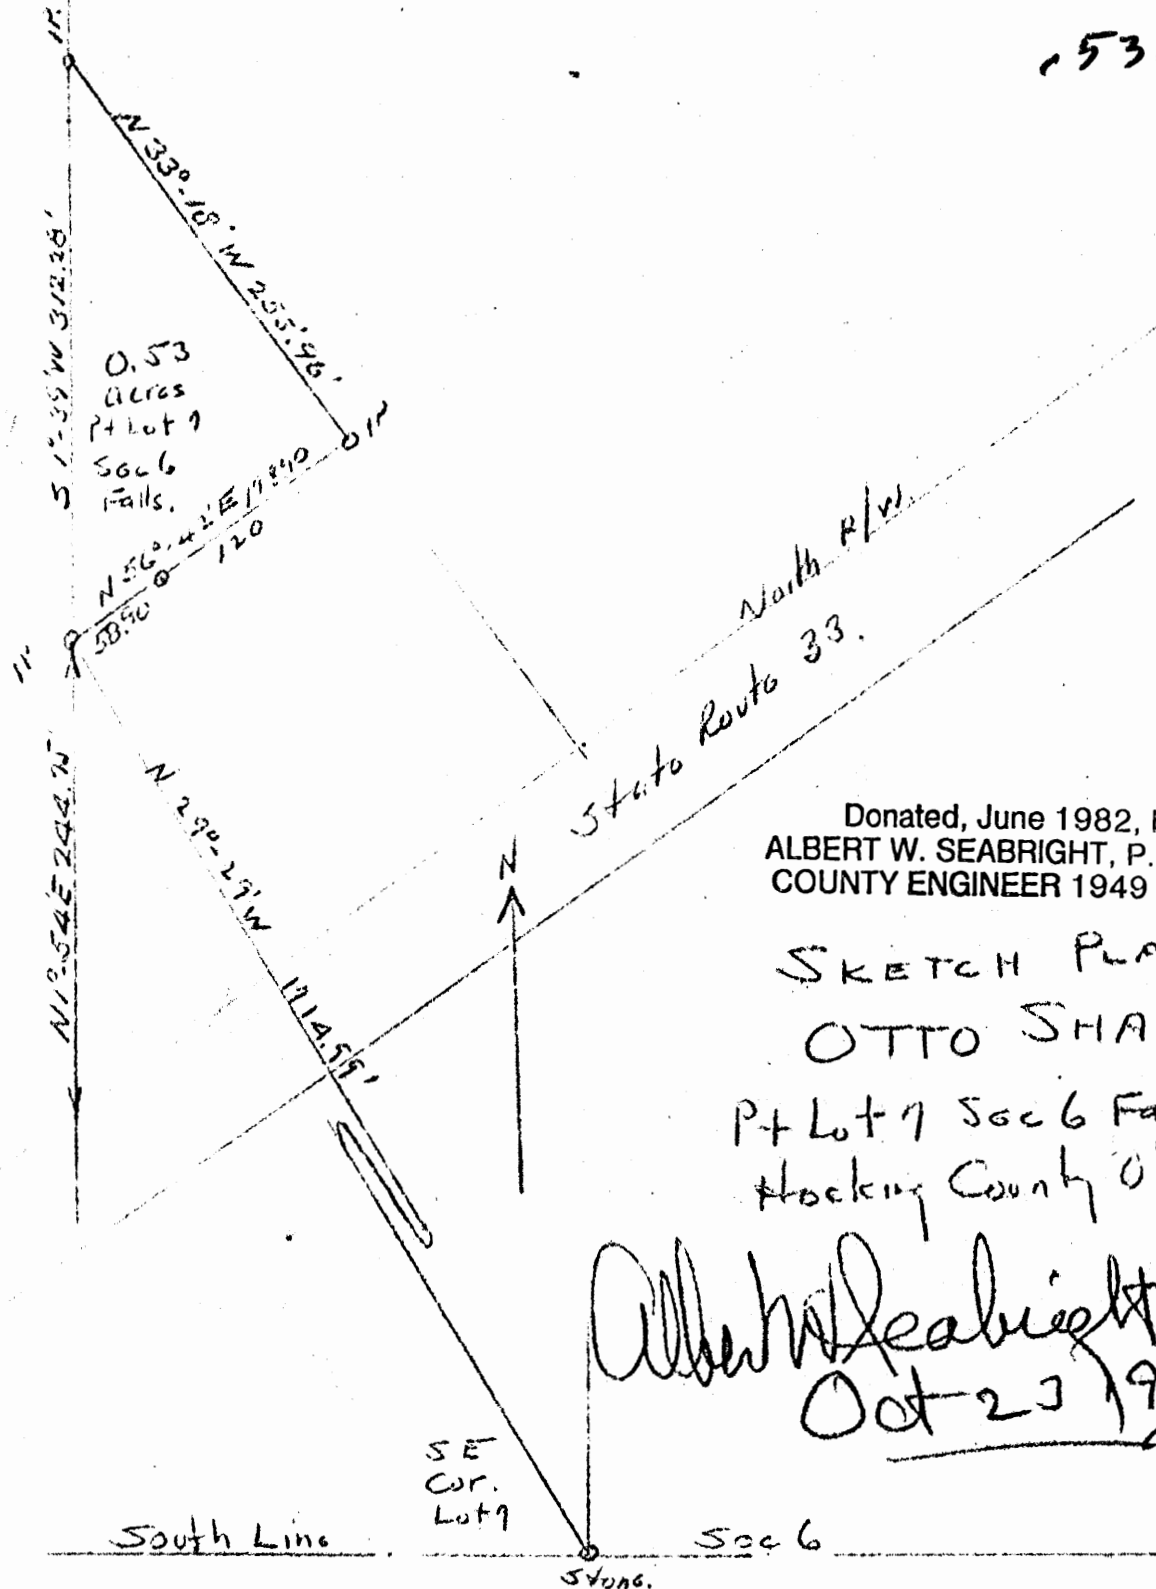 .53
IP.
N 33°-18' W 255.96'
S 1°-39' W 312.28'
0.53
Acres
Pt Lot 7
Sec 6
Falls.
IP
N 56°-42' E 178.90
120
58.90
IP.
North R/W.
State Route 33.
N 1°-54' E 244.75'
N 29°-29' W 1714.59'
N
Donated, June 1982,
ALBERT W. SEABRIGHT, P.
COUNTY ENGINEER 1949
SKETCH PLA
OTTO SHA
Pt Lot 7 Sec 6 Fa
Hocking County O
Albert W Seabright
Oct 23 19
SE
Cor.
Lot 7
South Line
Sec 6
Stone.